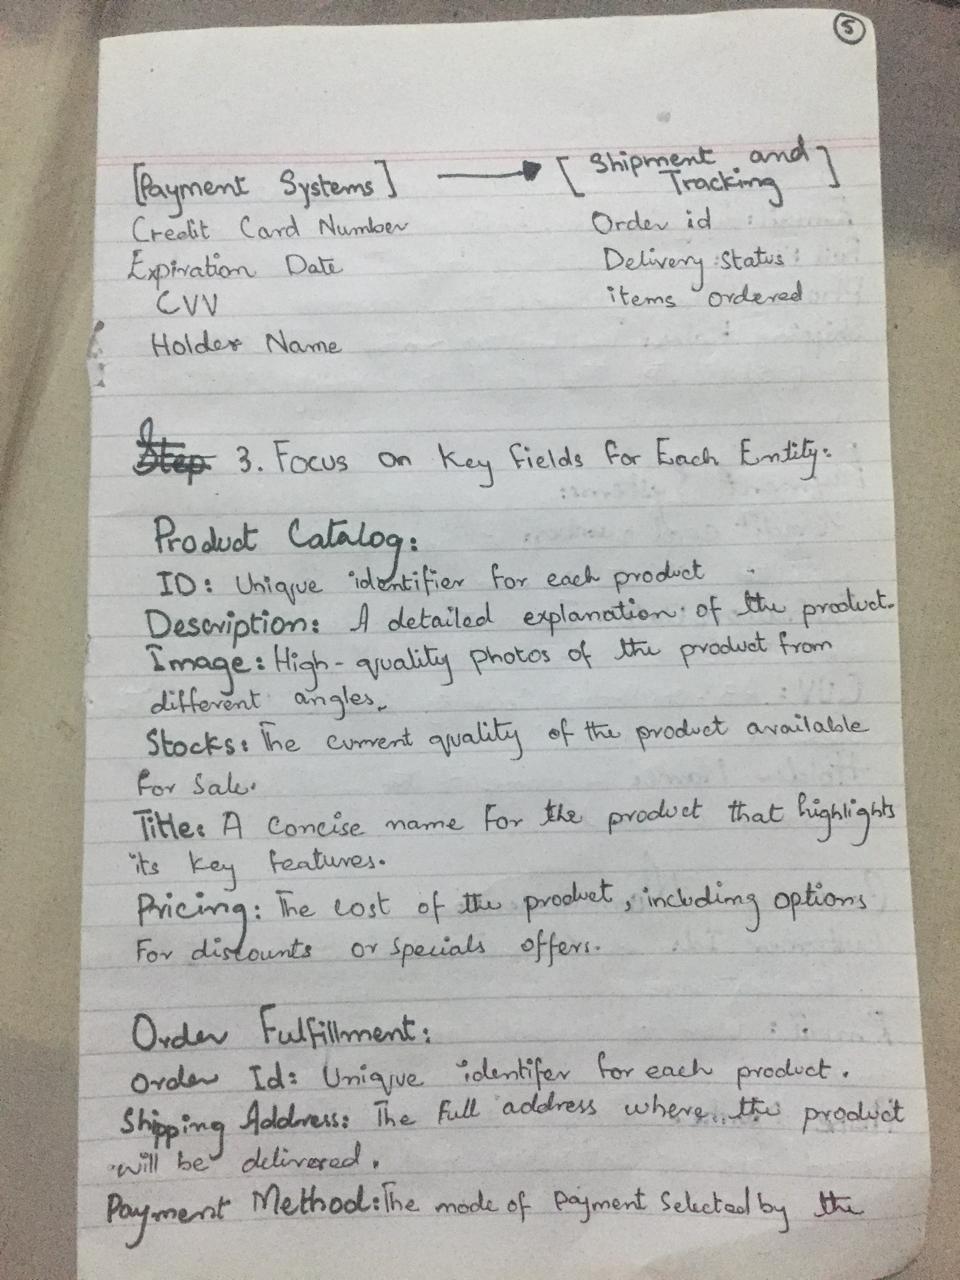 5
[Payment Systems] → [Shipment and Tracking]
Credit Card Number
Order id
Expiration Date
Delivery Status
CVV
items ordered
Holder Name
Step 3. Focus on Key fields for Each Entity:
Product Catalog:
ID: Unique identifier for each product
Description: A detailed explanation of the product.
Image: High-quality photos of the product from
different angles.
Stocks: The current quality of the product available
for sale.
Title: A Concise name for the product that highlights
its key features.
Pricing: The cost of the product, including options
For discounts or specials offers.
Order Fulfillment:
Order Id: Unique identifer for each product.
Shipping Address: The full address where the product
will be delivered.
Payment Method: The mode of payment selected by the